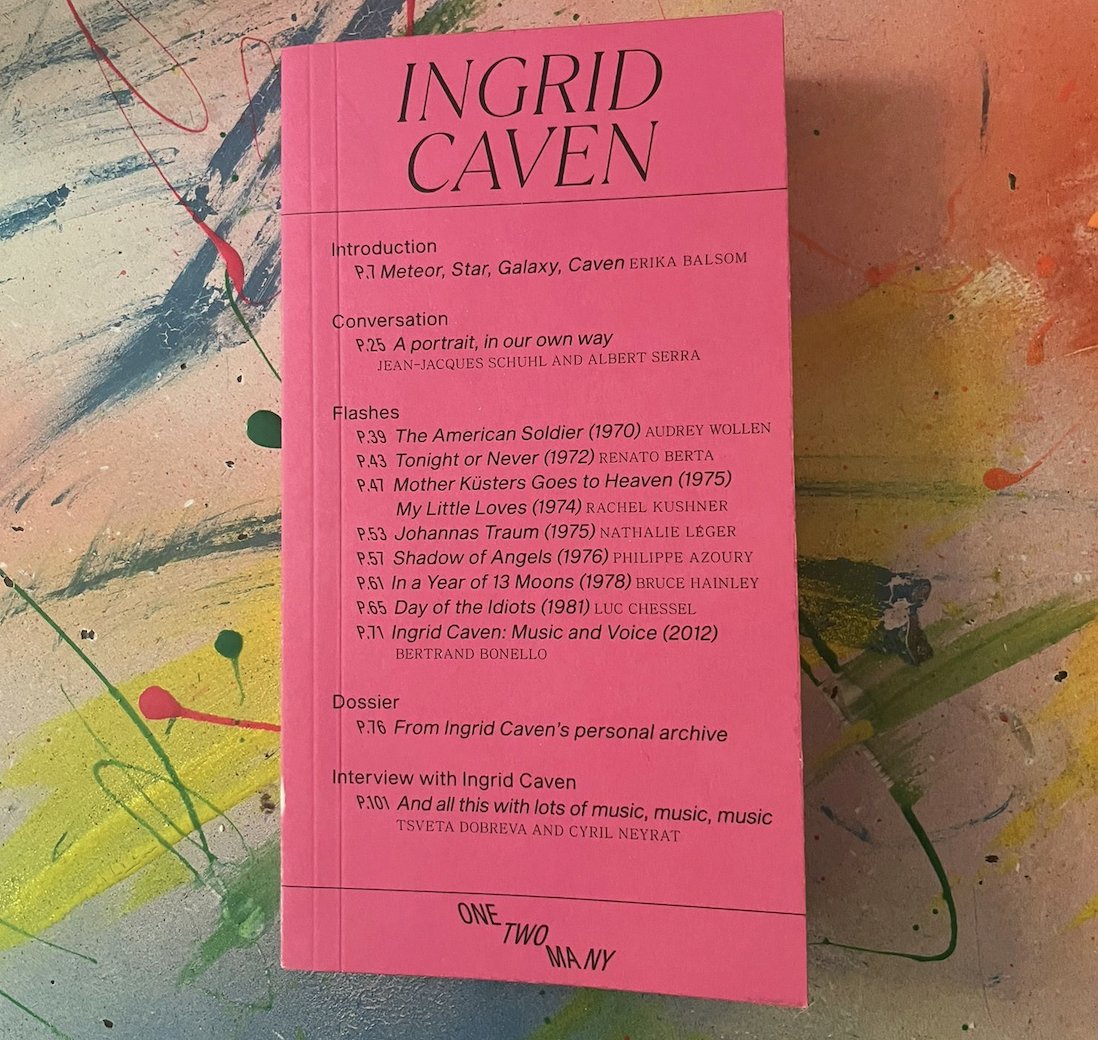 INGRID
CAVEN
Introduction
P.7 Meteor, Star, Galaxy, Caven ERIKA BALSOM
Conversation
P.25 A portrait, in our own way
JEAN-JACQUES SCHUHL AND ALBERT SERRA
Flashes
P.39 The American Soldier (1970) AUDREY WOLLEN
P.43 Tonight or Never (1972) RENATO BERTA
P.47 Mother Küsters Goes to Heaven (1975)
My Little Loves (1974) RACHEL KUSHNER
P.53 Johannas Traum (1975) NATHALIE LÉGER
P.57 Shadow of Angels (1976) PHILIPPE AZOURY
P.61 In a Year of 13 Moons (1978) BRUCE HAINLEY
P.65 Day of the Idiots (1981) LUC CHESSEL
P.71 Ingrid Caven: Music and Voice (2012)
BERTRAND BONELLO
Dossier
P.76 From Ingrid Caven's personal archive
Interview with Ingrid Caven
P.101 And all this with lots of music, music, music
TSVETA DOBREVA AND CYRIL NEYRAT
ONE
TWO
MANY